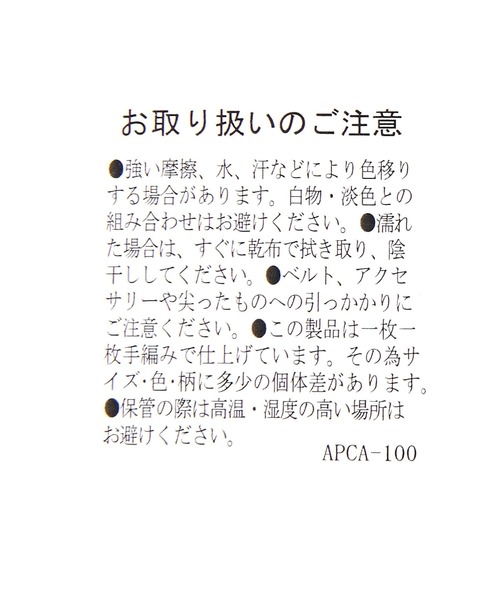 お取り扱いのご注意
●強い摩擦、水、汗などにより色移り
する場合があります。白物・淡色との
組み合わせはお避けください。●濡れ
た場合は、すぐに乾布で拭き取り、陰
干ししてください。●ベルト、アクセ
サリーや尖ったものへの引っかかりに
ご注意ください。●この製品は一枚一
枚手編みで仕上げています。その為サ
イズ・色・柄に多少の個体差があります。
●保管の際は高温・湿度の高い場所は
お避けください。
APCA-100